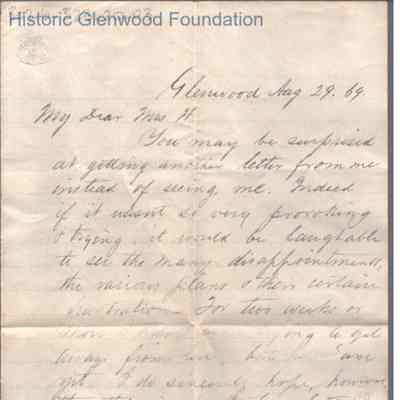 Historic Glenwood Foundation
Glenwood Aug 29. 69.
My Dear Mrs H.
You may be surprised
at getting another letter from me
instead of seeing me. Indeed
if it wasnt so very provoking
& trying, it would be laughable
to see the many disappointments,
the various plans & their certain
frustration. For two weeks or
to get
away from
I do sincerely hope, however,